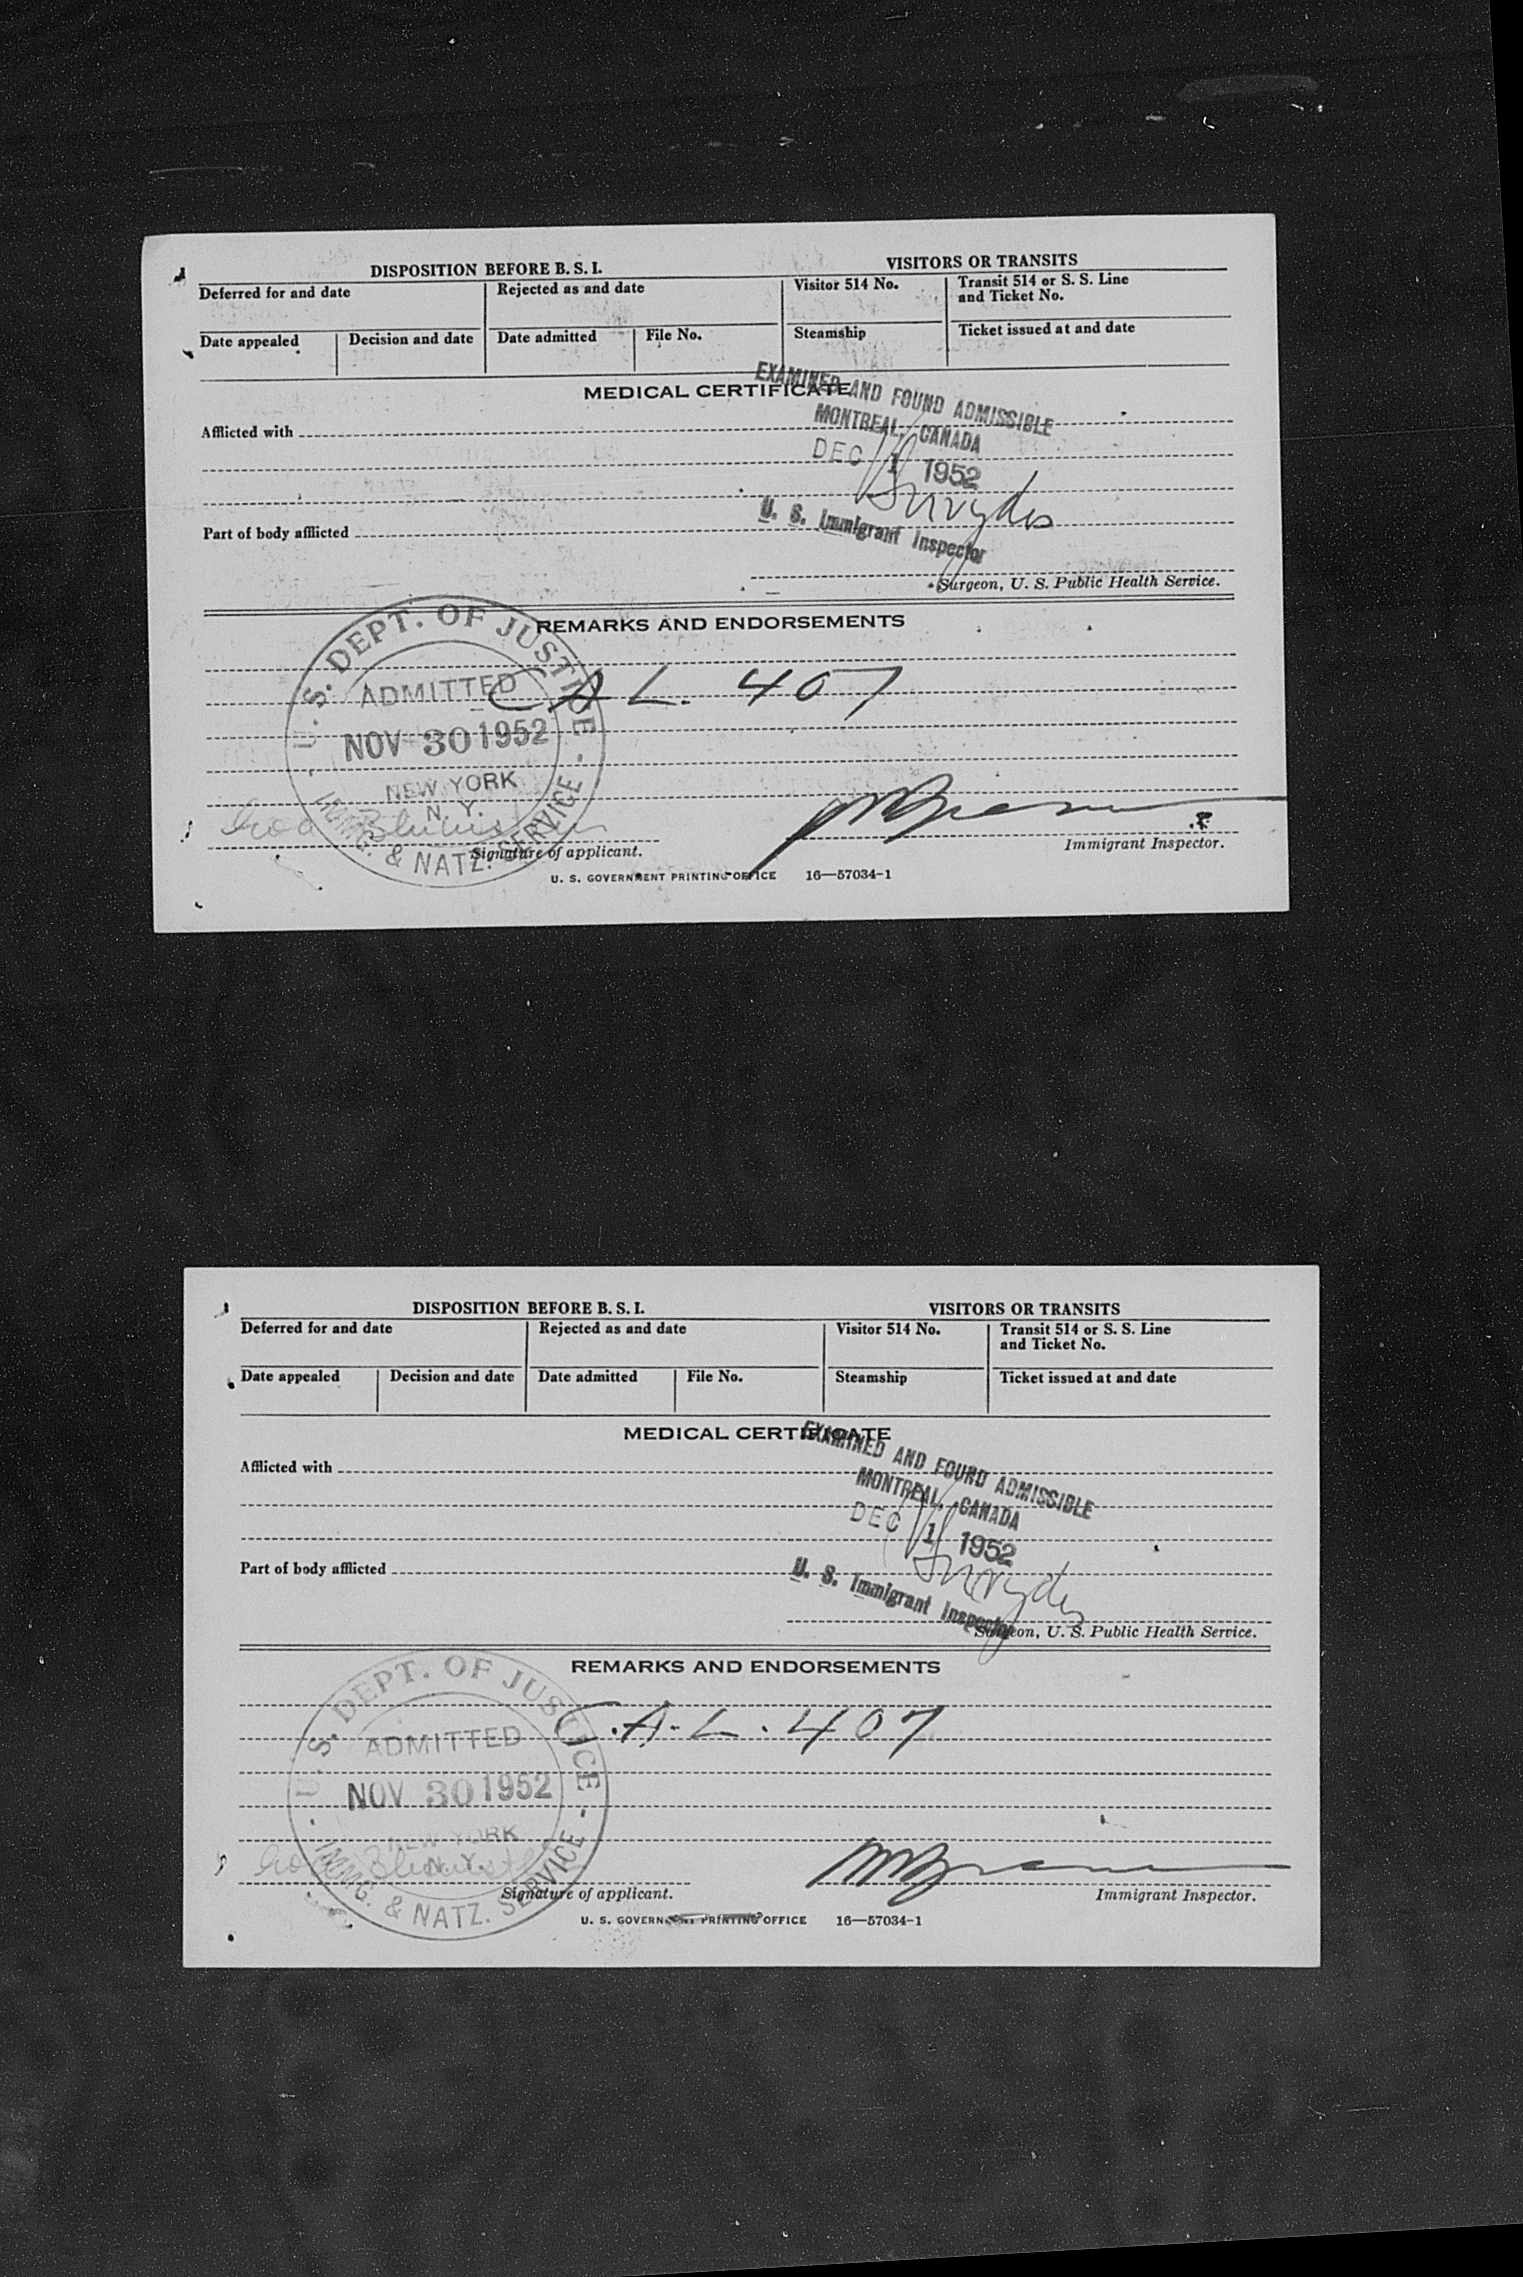 DISPOSITION BEFORE B. S. I.
VISITORS OR TRANSITS
Deferred for and date
Rejected as and date
Visitor 514 No.
Transit 514 or S. S. Line
and Ticket No.
Date appealed
Decision and date
Date admitted
File No.
Steamship
Ticket issued at and date
MEDICAL CERTIFICATE
EXAMINED AND FOUND ADMISSIBLE
MONTREAL, CANADA
DEC 1 1952
U. S. Immigrant Inspector
Afflicted with
Part of body afflicted
Surgeon, U. S. Public Health Service.
REMARKS AND ENDORSEMENTS
U. S. DEPT. OF JUSTICE - IMMG. & NATZ. SERVICE -
ADMITTED
NOV 30 1952
NEW YORK
N. Y.
C A L. 407
Signature of applicant.
Immigrant Inspector.
U. S. GOVERNMENT PRINTING OFFICE 16—57034-1
DISPOSITION BEFORE B. S. I.
VISITORS OR TRANSITS
Deferred for and date
Rejected as and date
Visitor 514 No.
Transit 514 or S. S. Line
and Ticket No.
Date appealed
Decision and date
Date admitted
File No.
Steamship
Ticket issued at and date
MEDICAL CERTIFICATE
EXAMINED AND FOUND ADMISSIBLE
MONTREAL, CANADA
DEC 1 1952
U. S. Immigrant Inspector
Afflicted with
Part of body afflicted
Surgeon, U. S. Public Health Service.
REMARKS AND ENDORSEMENTS
U. S. DEPT. OF JUSTICE - IMMG. & NATZ. SERVICE -
ADMITTED
NOV 30 1952
NEW YORK
N. Y.
C.A.L. 407
Signature of applicant.
Immigrant Inspector.
U. S. GOVERNMENT PRINTING OFFICE 16—57034-1